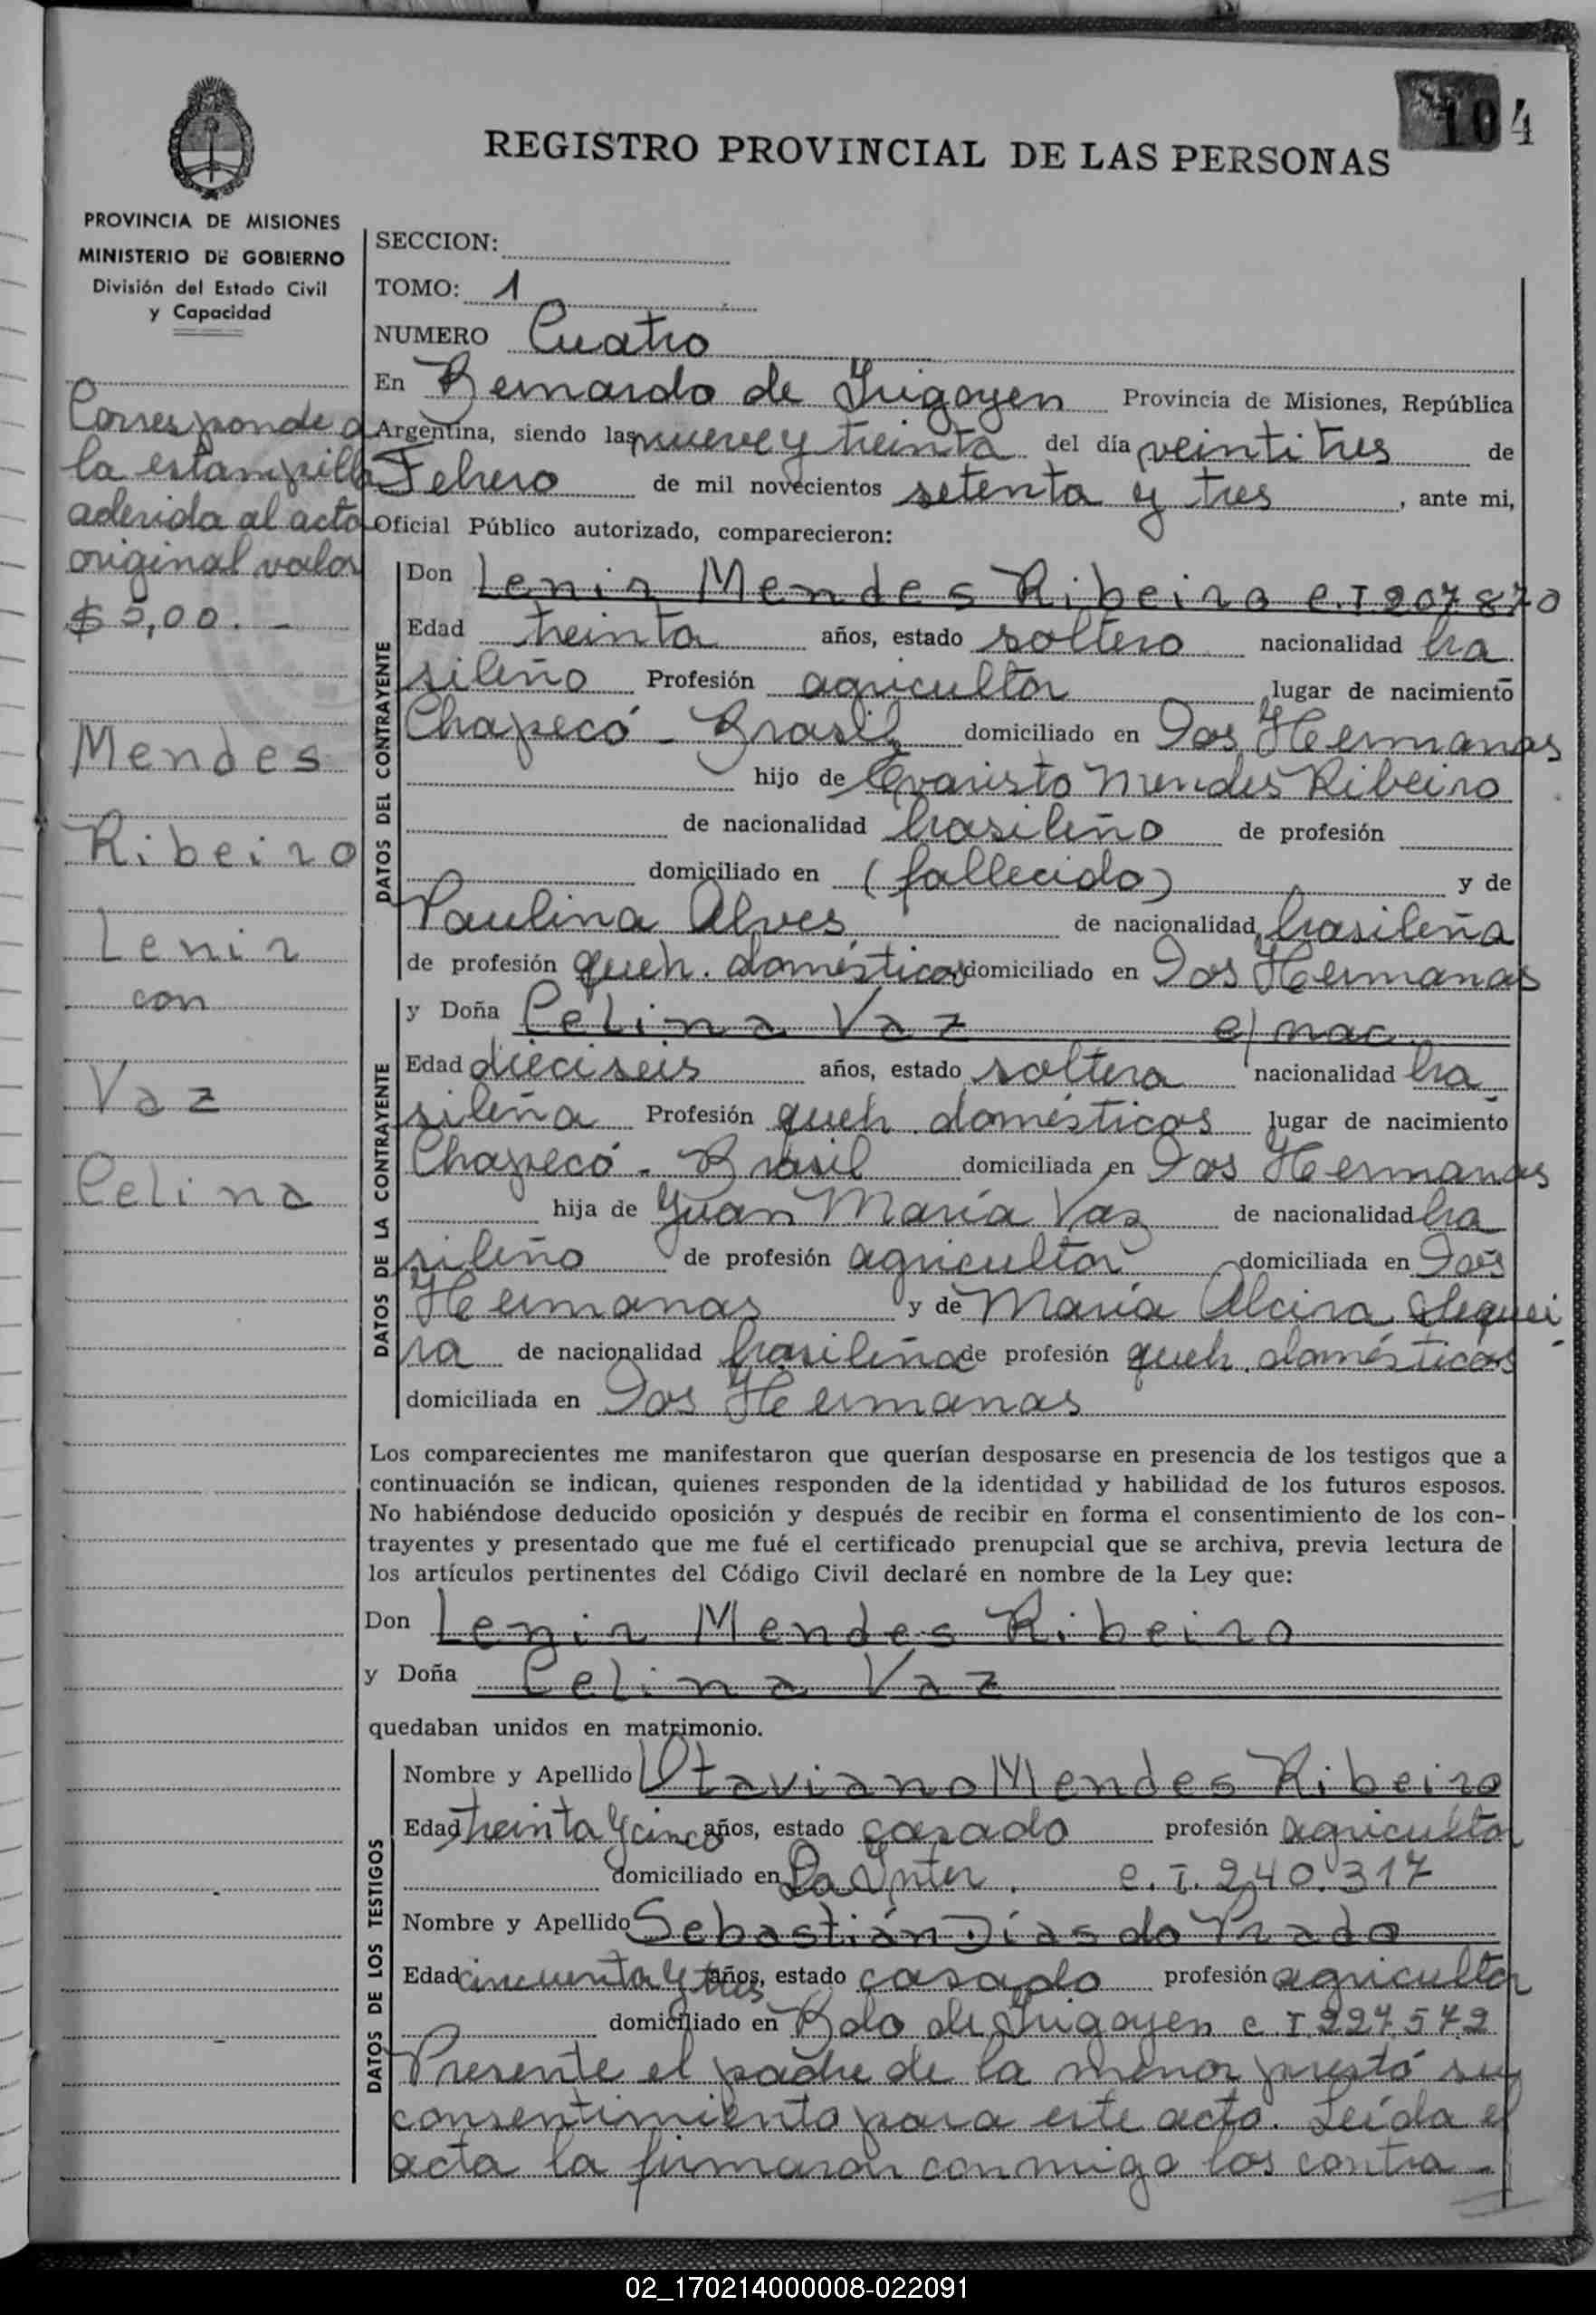 104
REGISTRO PROVINCIAL DE LAS PERSONAS
PROVINCIA DE MISIONES
MINISTERIO DE GOBIERNO
División del Estado Civil
y Capacidad
Corresponde a
la estampilla
aderida al acta
original valor
$ 5,00.-
Mendes
Ribeiro
Lenir
con
Vaz
Celina
SECCION:
TOMO: 1
NUMERO Cuatro
En Bernardo de Irigoyen Provincia de Misiones, República
Argentina, siendo las nueve y treinta del día veintitres de
Febrero de mil novecientos setenta y tres, ante mi,
Oficial Público autorizado, comparecieron:
DATOS DEL CONTRAYENTE
Don Lenir Mendes Ribeiro C.I 207870
Edad treinta años, estado soltero nacionalidad bra
sileño Profesión agricultor lugar de nacimiento
Chapecó - Brasil domiciliado en Dos Hermanas
hijo de Evaristo Mendes Ribeiro
de nacionalidad brasileño de profesión
domiciliado en (fallecido) y de
Paulina Alves de nacionalidad brasileña
de profesión queh. domésticos domiciliado en Dos Hermanas
DATOS DE LA CONTRAYENTE
y Doña Celina Vaz c/nac.
Edad dieciseis años, estado soltera nacionalidad bra
sileña Profesión queh. domésticos lugar de nacimiento
Chapecó - Brasil domiciliada en Dos Hermanas
hija de Juan María Vaz de nacionalidad bra
sileño de profesión agricultor domiciliada en Dos
Hermanas y de María Alcira Sequei
ra de nacionalidad brasileña de profesión queh. domésticos
domiciliada en Dos Hermanas
Los comparecientes me manifestaron que querían desposarse en presencia de los testigos que a
continuación se indican, quienes responden de la identidad y habilidad de los futuros esposos.
No habiéndose deducido oposición y después de recibir en forma el consentimiento de los con-
trayentes y presentado que me fué el certificado prenupcial que se archiva, previa lectura de
los artículos pertinentes del Código Civil declaré en nombre de la Ley que:
Don Lenir Mendes Ribeiro
y Doña Celina Vaz
quedaban unidos en matrimonio.
DATOS DE LOS TESTIGOS
Nombre y Apellido Otaviano Mendes Ribeiro
Edad treinta y cinco años, estado casado profesión agricultor
domiciliado en La Inter. C.I. 240.317
Nombre y Apellido Sebastián Días do Prado
Edad cincuenta y tres años, estado casado profesión agricultor
domiciliado en Bdo de Irigoyen C I 227.572
Presente el padre de la menor prestó su
consentimiento para este acto. Leída el
acta la firmaron conmigo los contra-
02_170214000008-022091